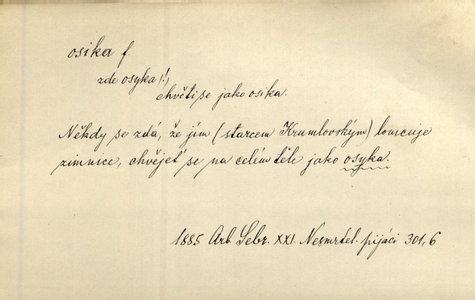 osika f.
zde osyka /!/,
chvěti se jako osika.
Někdy se zdá, že jím (starcem Krumlovským) lomcuje
zimnice, chvějeť se na celém těle jako osyka.
1885 Arb Sebr. XXI. Nesmrtel. pijáci 301,6